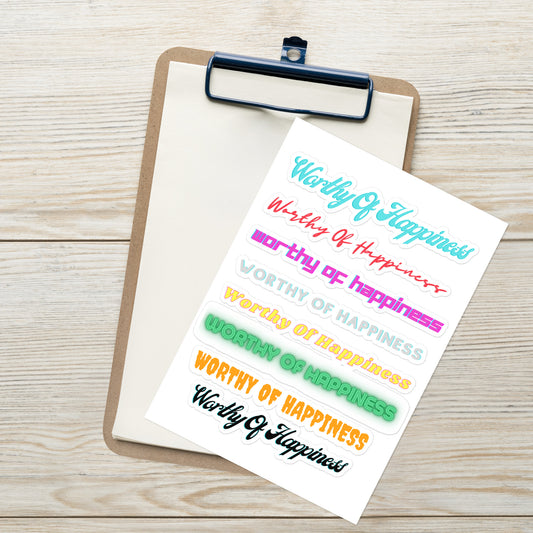 Worthy Of Happiness
Worthy Of Happiness
worthy of happiness
WORTHY OF HAPPINESS
Worthy Of Happiness
WORTHY OF HAPPINESS
WORTHY OF HAPPINESS
Worthy Of Happiness